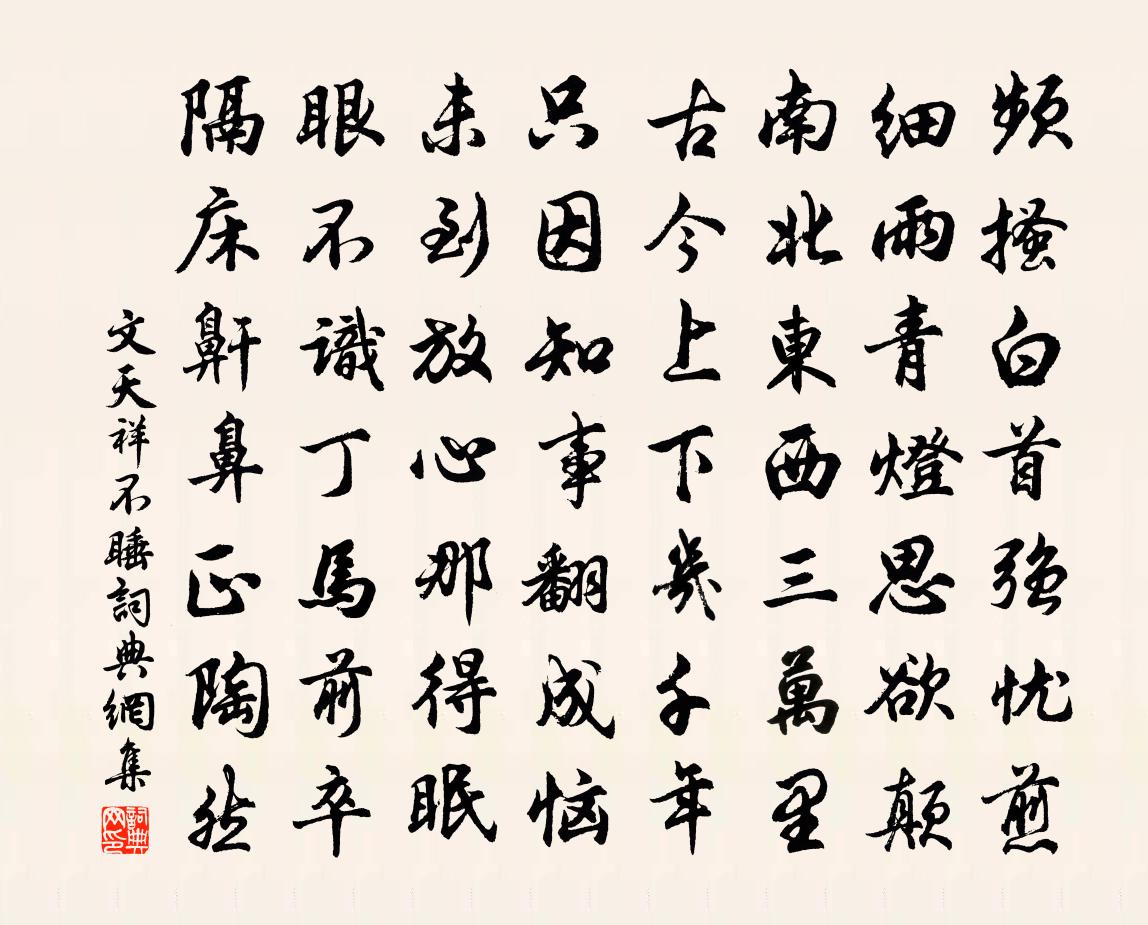 頻搔白首强忧煎
细雨青燈思欲颠
南北東西三萬里
古今上下幾千年
只因知事翻成恼
未到放心那得眠
眼不識丁馬前卒
隔床鼾鼻正陶然
文天祥不睡詞典網集
詞典網印